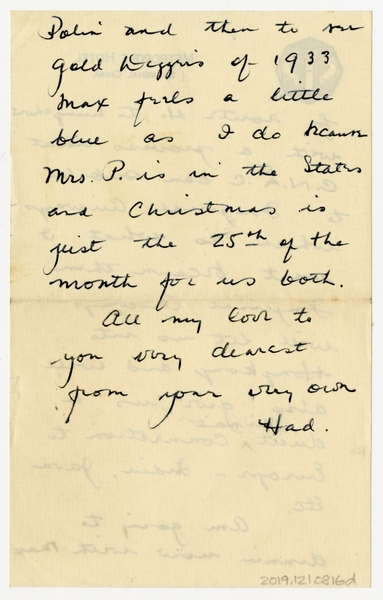 and then to see
Gold Diggers of 1933
Max feels a little
blue as I do because
Mrs. P. is in the States
and Christmas is
just the 25th of the
month for us both.
All my love to
you very dearest
from your very own
Had.
2019.121.0816d